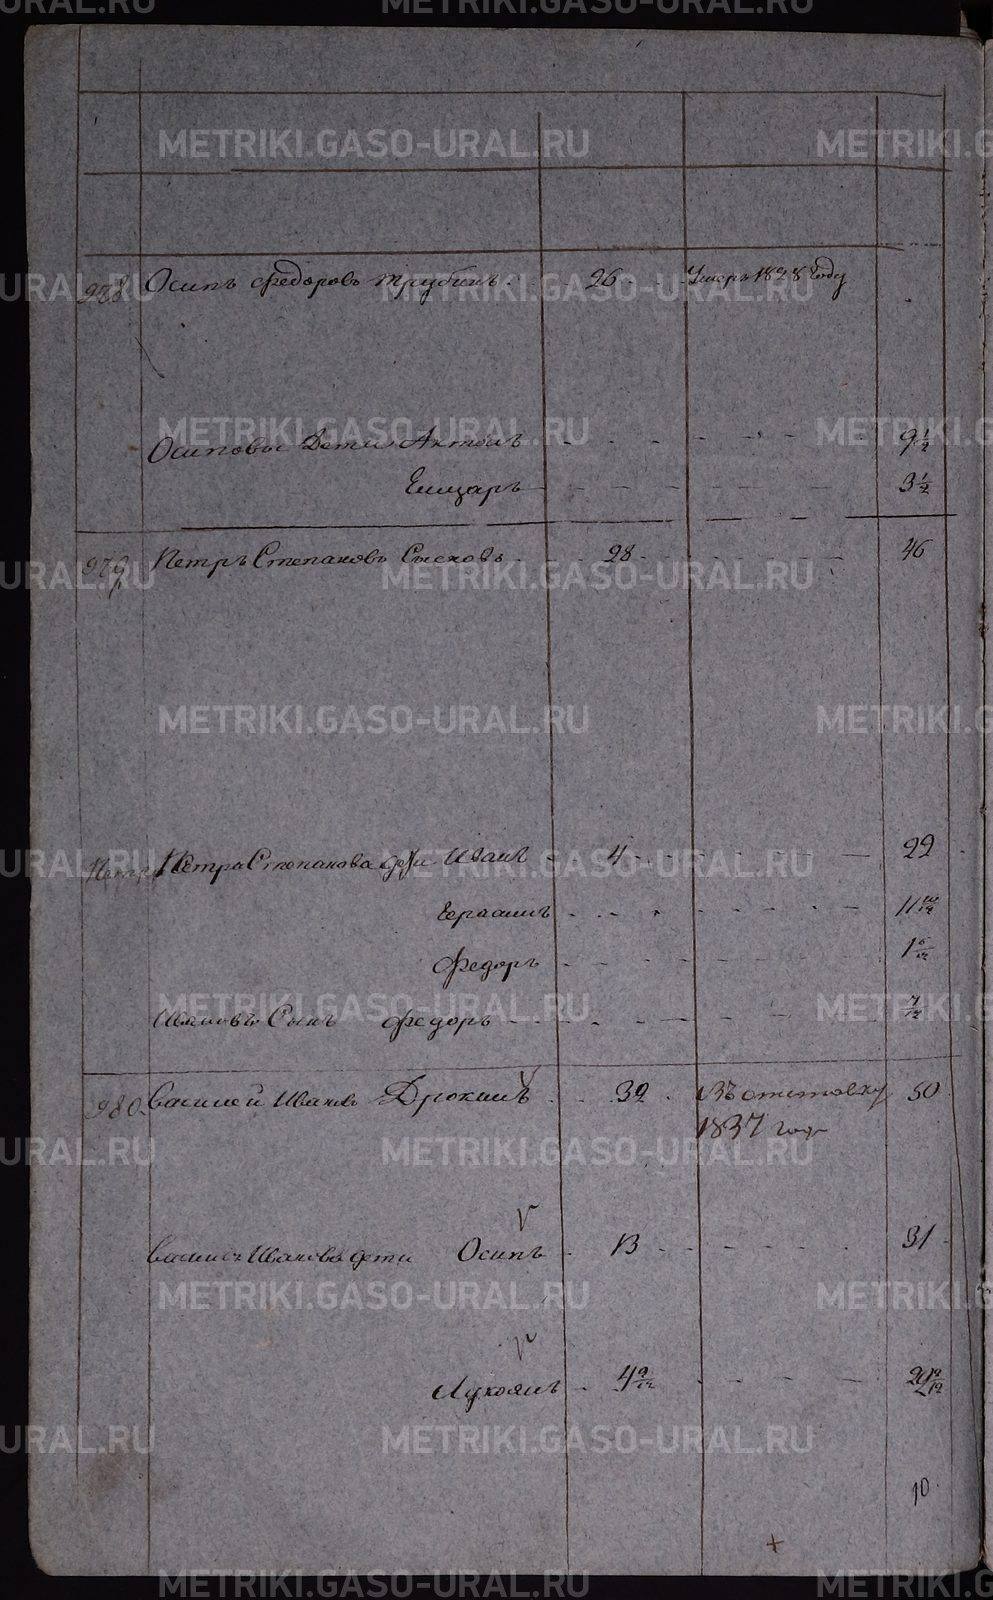 978 Осипъ Федоровъ Трубинъ 26 Умеръ 1828 Году
Осиповы Дети Антонъ 9 1/2
Елизаръ 3 1/2
979 Петръ Степановъ Сысковъ 28 46
Петра Степанова дети Иванъ 4 22
Герасимъ 11 10/12
Федоръ 1 6/12
Ивановъ Сынъ Федоръ 7/12
980 Василей Ивановъ Дрокинъ 32 Въ отставку 50
1837 года
Ивановъ дети Осипъ 13 31
Лукоянъ 4 9/12 22 9/12
10
METRIKI.GASO-URAL.RU